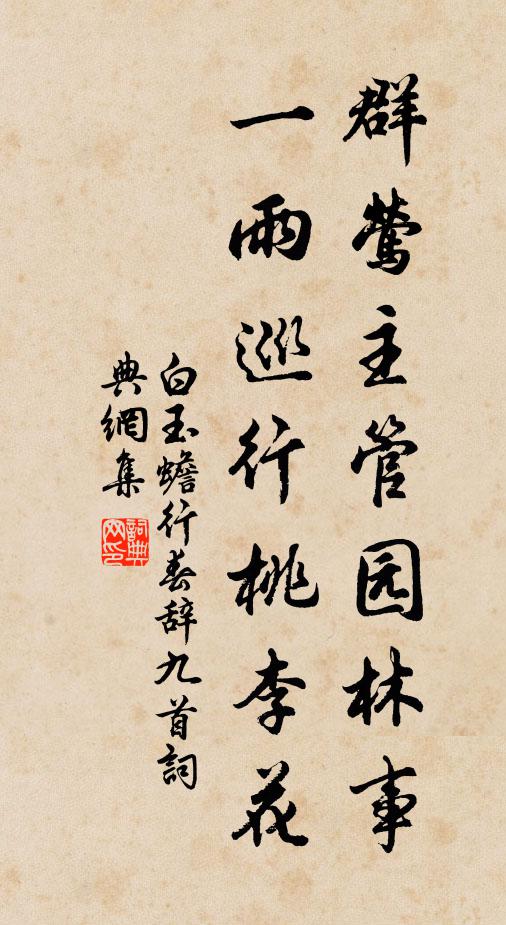 群莺主管园林事
一雨巡行桃李花
白玉蟾行春辞九首詞
典網集
詞典網印